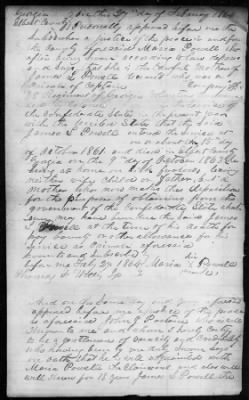 Georgia on this 9th day of February 1864
Elbert County Personally appeared before me
Subscriber a justice of the peace in and for
the County aforesaid Maria Powell who
after being sworn according to law deposes
and says that she is the mother of
James S Powell deceased who was a
private of Captain Company
Regiment of Georgia
of the Confederate States in the present war
with the United States that the said
James S Powell entered the service at
on or about the 15 day
of October 1861 and died in Elbert County
Georgia on the 9th day of October 1863 he
being at home on sick furlough leaving
neither wife children nor father but a
mother who now makes this deposition
for the purpose of obtaining from the
government of the Confederate States what
ever may have been due the said James
S Powell at the time of his death for
pay bounty or other allowance for his
service as a private aforesaid
Sworn and subscribed to her
before me Feb 9th 1864 Maria Powell
Thomas J mark

And on the same day and year
appeared before me a justice of the peace
as aforesaid John
known to me and whom I hereby certify
to be a gentleman of veracity and
who having been by me duly sworn says
on oath that he is well acquainted with
Maria Powell the claimant and was well
well known for 18 years James S Powell the